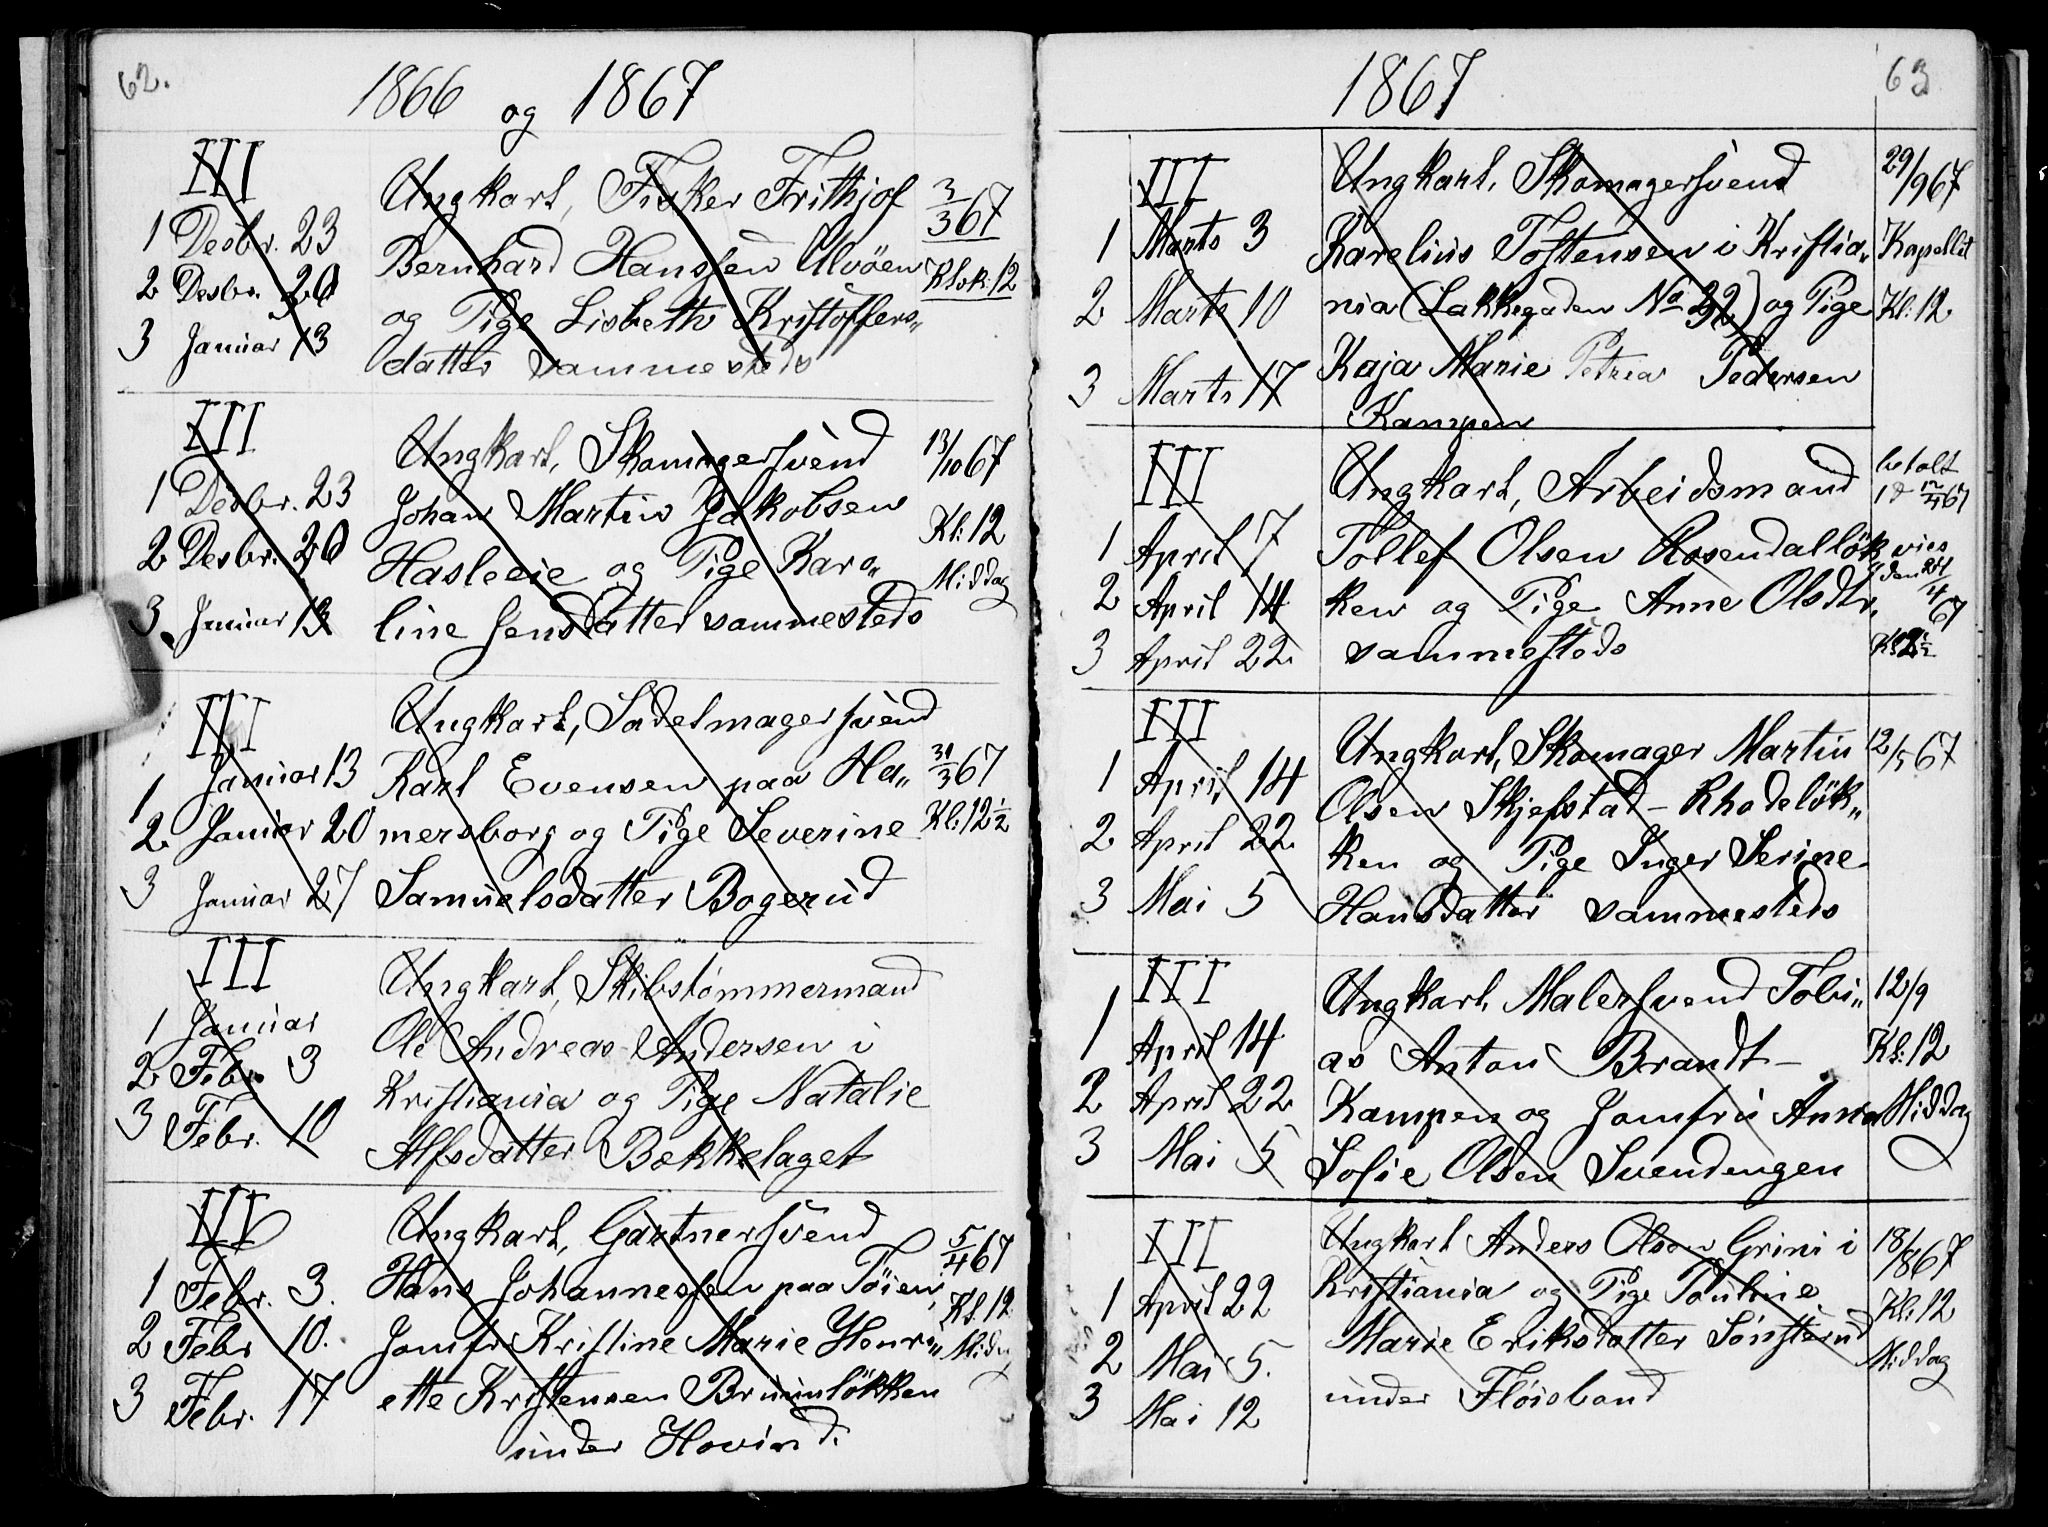 62.
1866 og 1867
III
1 Desbr. 23
2 Desbr. 26
3 Januar 13
Ungkarl, Fisker Frithjof
Bernhard Hanssen Ulvöen
og Pige Lisbeth Kristoffers„
datter sammesteds
3/3 67
Klok: 12
III
1 Desbr. 23
2 Desbr. 26
3 Januar 13
Ungkarl, Skomagersvend
Johan Martin Jakobsen
Hasleeie og Pige Karo„
line Jensdatter sammesteds
13/10 67
Kl: 12
Middag
III
1 Januar 13
2 Januar 20
3 Januar 27
Ungkarl, Sadelmagersvend
Karl Evensen paa Ha„
mersborg og Pige Severine
Samuelsdatter Bogerud
31/3 67
Kl: 12 1/2
III
1 Januar
2 Febr 3
3 Febr. 10
Ungkarl, Skibstömmermand
Ole Andreas Andersen i
Kristiania og Pige Natalie
Alfsdatter Bækkelaget
III
1 Febr. 3.
2 Febr 10.
3 Febr. 17
Ungkarl, Gartnersvend
Hans Johannessen paa Töien,
Jomfr Kristine Marie Henri„
ette Kristensen Brunnlökken
under Hovind.
5/4 67
Kl. 12
Midd
1867
63
III
1 Marts 3
2 Marts 10
3 Marts 17
Ungkarl, Skomagersvend
Karelius Tostensen i Kristia„
nia (Lakkegaden No 32) og Pige
Kaja Marie Petrea Pedersen
Kampen
29/9 67
Kapellet
Kl: 12
III
1 April 7
2 April 14
3 April 22
Ungkarl, Arbeidsmand
Tollef Olsen Rosendallök
ken og Pige Anne Olsdtr.
sammesteds
betalt
vies
den 21/4
67
III
1 April 14
2 April 22
3 Mai 5
Ungkarl, Skomager Martin
Olsen Skjefstad - Rhodelök„
ken og Pige Inger Serine
Hansdatter sammesteds
12/5 67
III
1 April 14
2 April 22
3 Mai 5
Ungkarl, Malersvend Tobi„
as Anton Brandt -
Kampen og Jomfru Anna
Sofie Olsen Svendengen
12/9
Kl: 12
Middag
III
1 April 22
2 Mai 5.
3 Mai 12
Ungkarl Anders Olsen Grini i
Kristiania og Pige Pauline
Marie Eriksdatter Sönsterud
under Flöisbond
18/8 67
Kl: 12
Middag